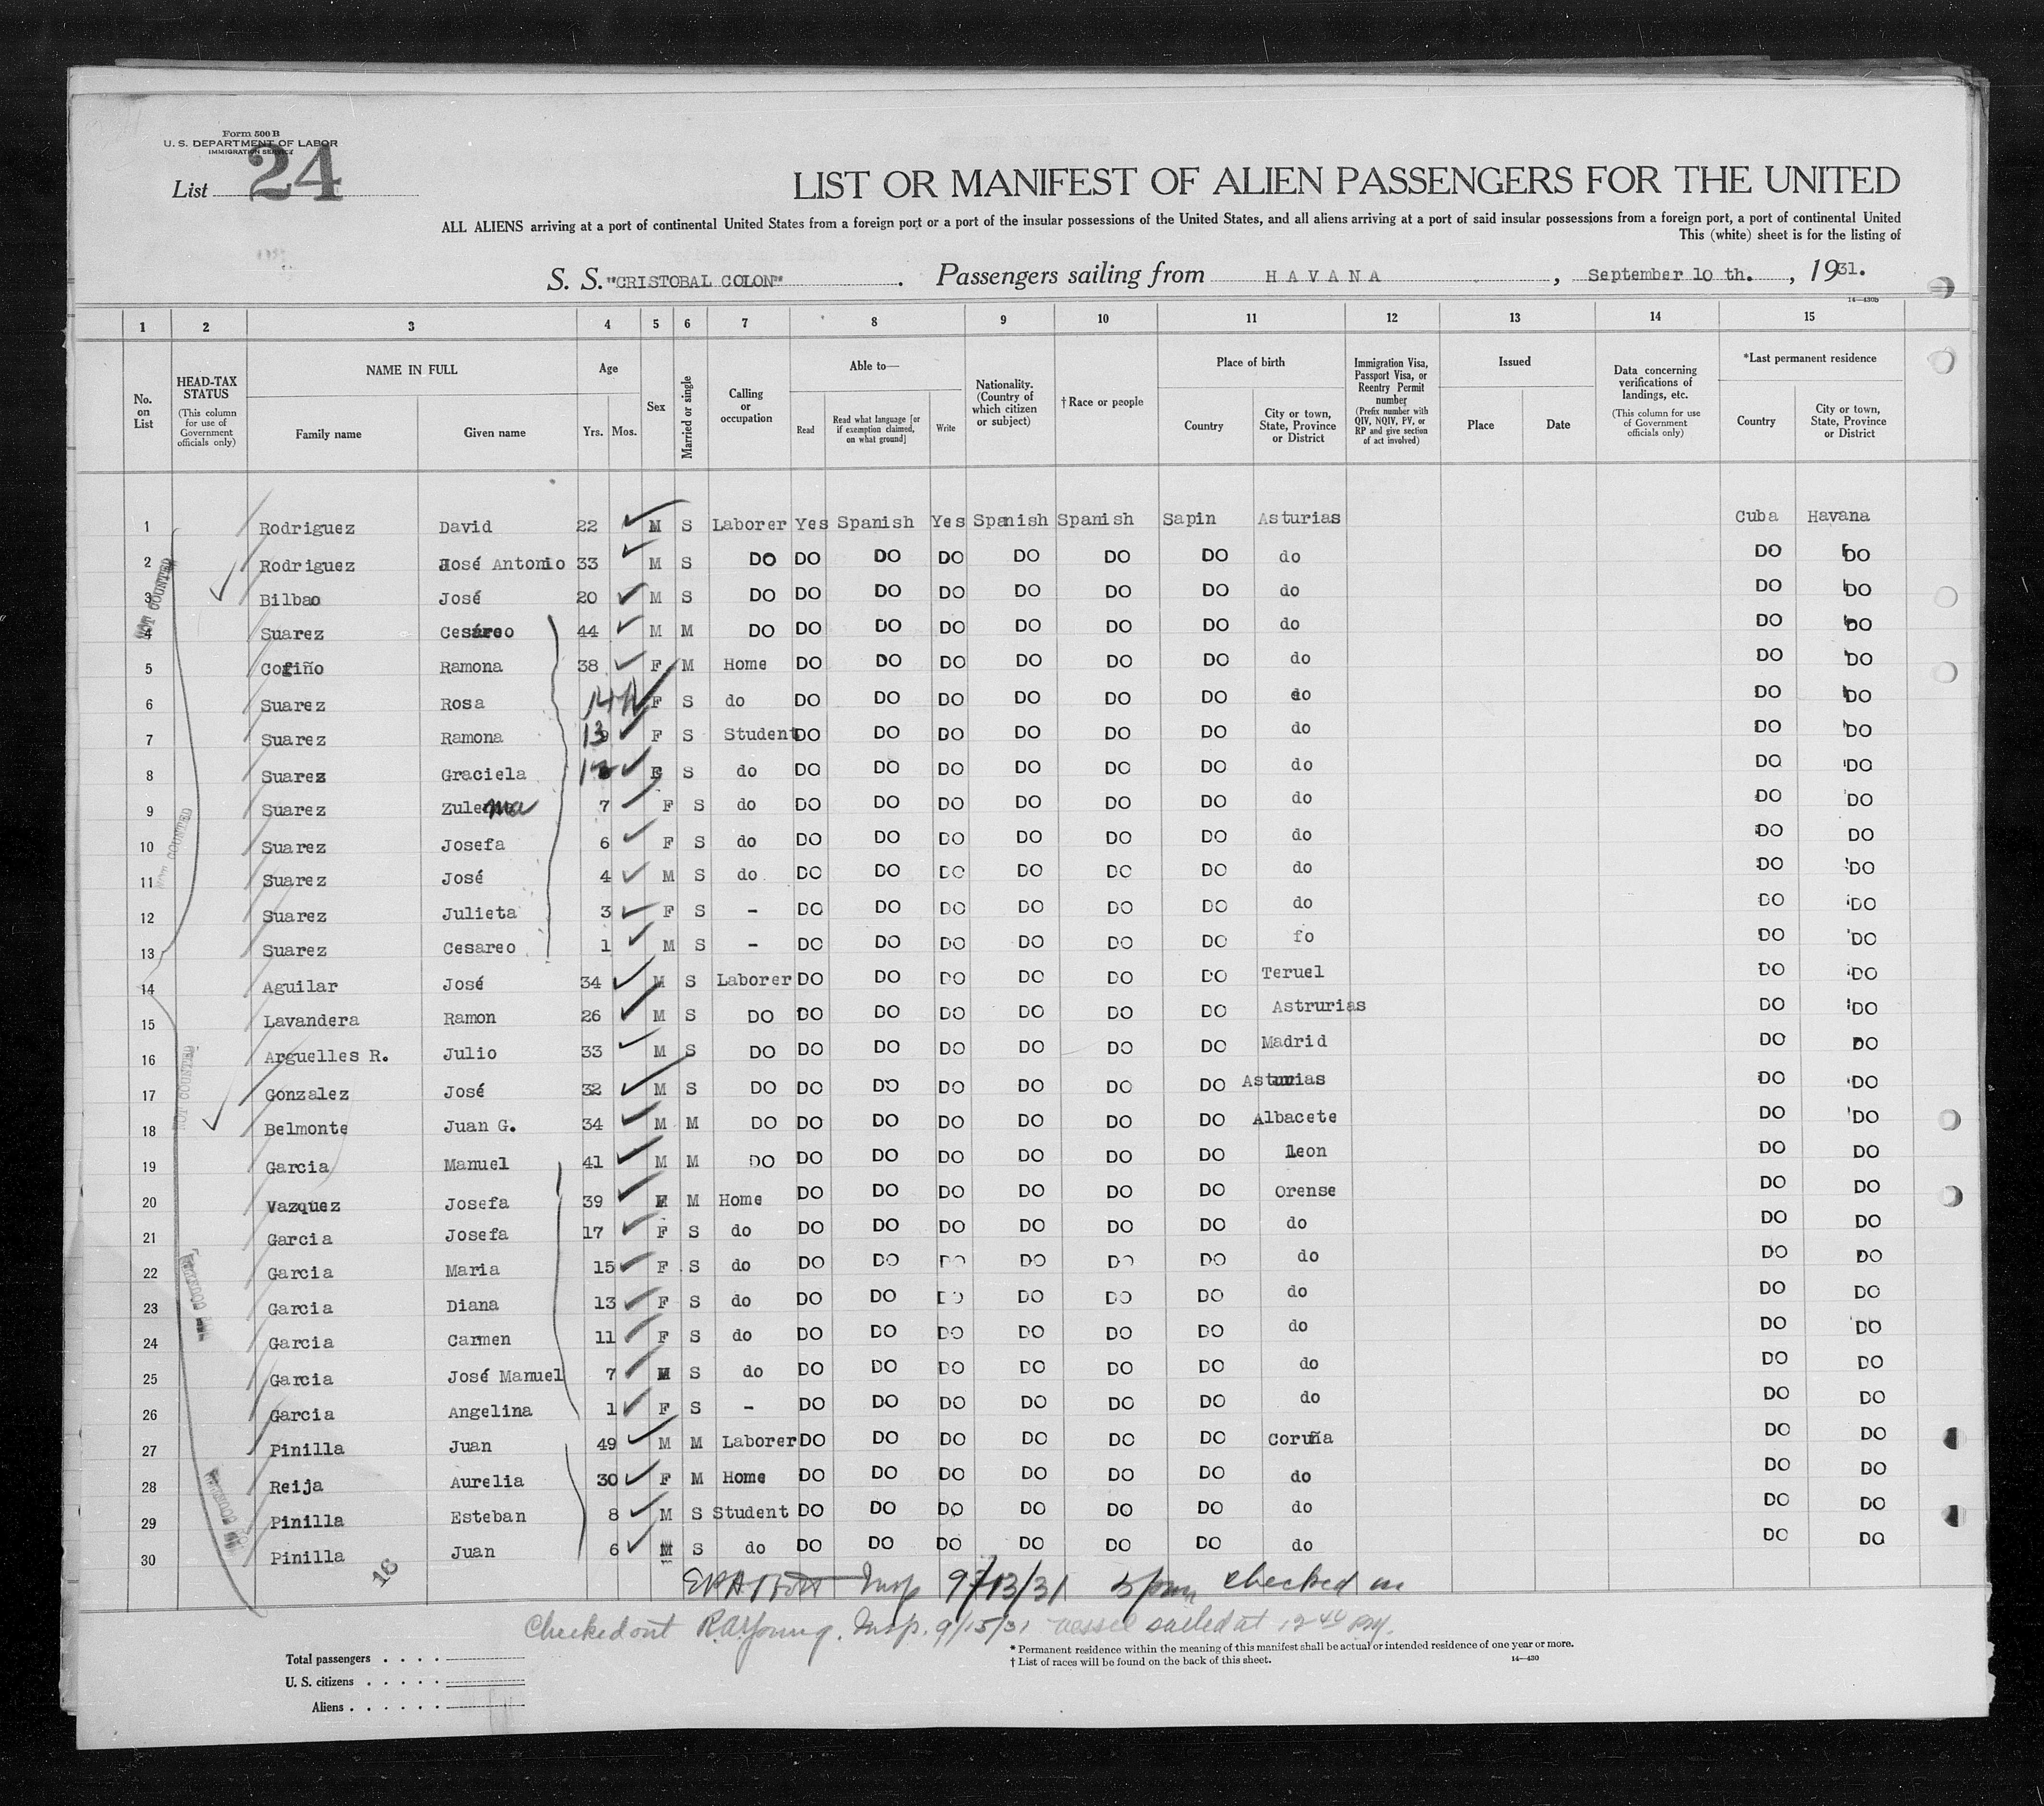 Form 500 B
U. S. DEPARTMENT OF LABOR
IMMIGRATION SERVICE
List 24
LIST OR MANIFEST OF ALIEN PASSENGERS FOR THE UNITED
ALL ALIENS arriving at a port of continental United States from a foreign port or a port of the insular possessions of the United States, and all aliens arriving at a port of said insular possessions from a foreign port, a port of continental United
This (white) sheet is for the listing of
S. S. "CRISTOBAL COLON" . Passengers sailing from HAVANA , September 10 th. , 1931.
14—430B
1 2 3 4 5 6 7 8 9 10 11 12 13 14 15
No. on List
HEAD-TAX STATUS (This column for use of Government officials only)
NAME IN FULL Family name Given name
Age Yrs. Mos.
Sex
Married or single
Calling or occupation
Able to— Read Read what language [or if exemption claimed, on what ground] Write
Nationality. (Country of which citizen or subject)
†Race or people
Place of birth Country City or town, State, Province or District
Immigration Visa, Passport Visa, or Reentry Permit number (Prefix number with QIV, NQIV, PV, or RP and give section of act involved)
Issued Place Date
Data concerning verifications of landings, etc. (This column for use of Government officials only)
*Last permanent residence Country City or town, State, Province or District
1 Rodriguez David 22 M S Laborer Yes Spanish Yes Spanish Spanish Sapin Asturias Cuba Havana
2 Rodriguez José Antonio 33 M S DO DO DO DO DO DO DO do DO DO
3 Bilbao José 20 M S DO DO DO DO DO DO DO do DO DO
4 Suarez Cesáreo 44 M M DO DO DO DO DO DO DO do DO DO
5 Cofiño Ramona 38 F M Home DO DO DO DO DO DO do DO DO
6 Suarez Rosa 14 F S do DO DO DO DO DO DO do DO DO
7 Suarez Ramona 13 F S Student DO DO DO DO DO DO do DO DO
8 Suarez Graciela F S do DO DO DO DO DO DO do DO DO
9 Suarez Zulema 7 F S do DO DO DO DO DO DO do DO DO
10 Suarez Josefa 6 F S do DO DO DO DO DO DO do DO DO
11 Suarez José 4 M S do DO DO DO DO DO DO do DO DO
12 Suarez Julieta 3 F S - DO DO DO DO DO DO do DO DO
13 Suarez Cesareo 1 M S - DO DO DO DO DO DO fo DO DO
14 Aguilar José 34 M S Laborer DO DO DO DO DO DO Teruel DO DO
15 Lavandera Ramon 26 M S DO DO DO DO DO DO DO Astrurias DO DO
16 Arguelles R. Julio 33 M S DO DO DO DO DO DO DO Madrid DO DO
17 Gonzalez José 32 M S DO DO DO DO DO DO DO Asturias DO DO
18 Belmonte Juan G. 34 M M DO DO DO DO DO DO DO Albacete DO DO
19 Garcia Manuel 41 M M DO DO DO DO DO DO DO Leon DO DO
20 Vazquez Josefa 39 F M Home DO DO DO DO DO DO Orense DO DO
21 Garcia Josefa 17 F S do DO DO DO DO DO DO do DO DO
22 Garcia Maria 15 F S do DO DO DO DO DO DO do DO DO
23 Garcia Diana 13 F S do DO DO DO DO DO DO do DO DO
24 Garcia Carmen 11 F S do DO DO DO DO DO DO do DO DO
25 Garcia José Manuel 7 M S do DO DO DO DO DO DO do DO DO
26 Garcia Angelina 1 F S - DO DO DO DO DO DO do DO DO
27 Pinilla Juan 49 M M Laborer DO DO DO DO DO DO Coruña DO DO
28 Reija Aurelia 30 F M Home DO DO DO DO DO DO do DO DO
29 Pinilla Esteban 8 M S Student DO DO DO DO DO DO do DO DO
30 Pinilla Juan 6 M S do DO DO DO DO DO DO do DO DO
NOT COUNTED
NOT COUNTED
NOT COUNTED
16
Insp 9/13/31 5 pm checked in
Checked out R.A. Young. Insp. 9/15/31 vessel sailed at 12 40 PM.
* Permanent residence within the meaning of this manifest shall be actual or intended residence of one year or more.
† List of races will be found on the back of this sheet.
14—430
Total passengers . . . .
U. S. citizens . . . . .
Aliens . . . . . .